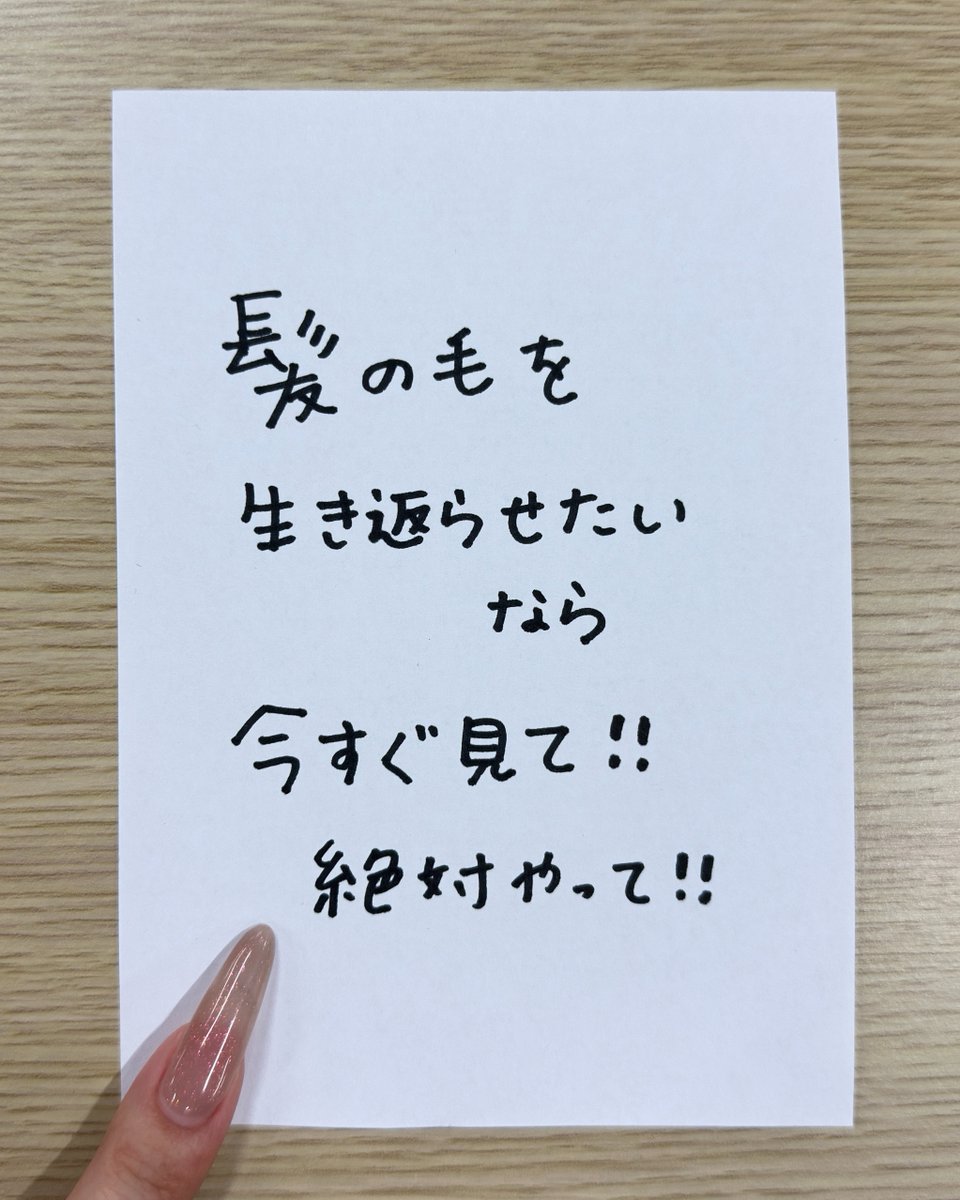 髪の毛を
生き返らせたい
なら
今すぐ見て!!
絶対やって!!